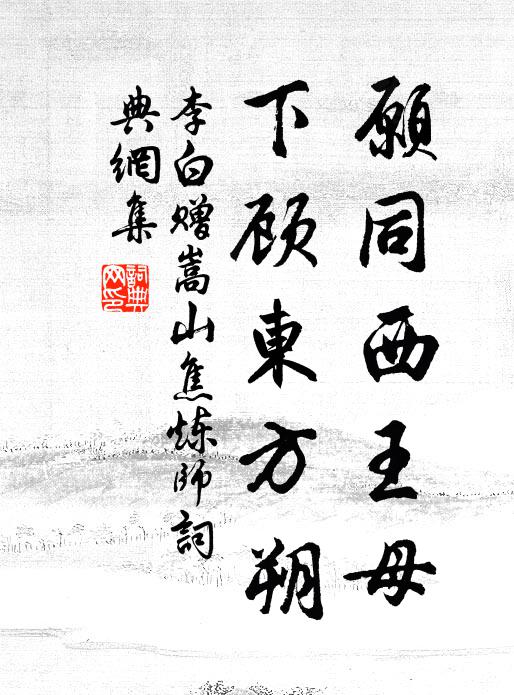 願同西王母
下顧東方朔
李白贈嵩山焦炼師詞
典網集
詞典网印